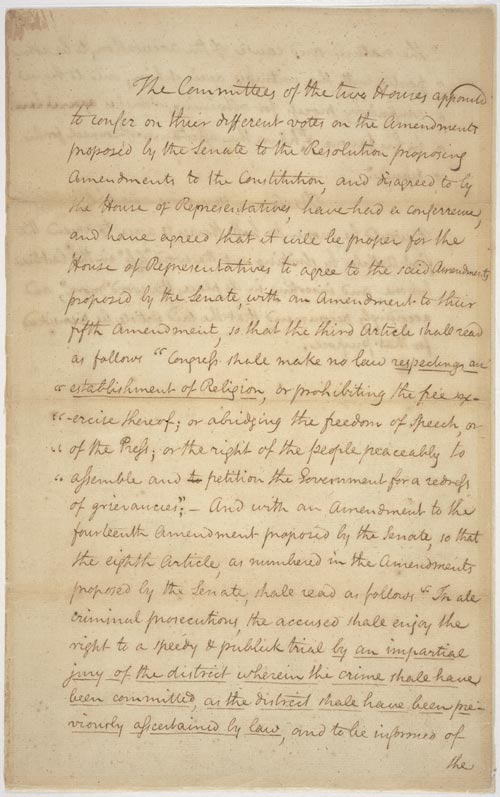 The Committees of the two Houses appointed
to confer on their different votes on the Amendments
proposed by the Senate to the Resolution proposing
Amendments to the Constitution, and disagreed to by
the House of Representatives, have had a conference,
and have agreed that it will be proper for the
House of Representatives to agree to the said Amendments
proposed by the Senate, with an Amendment to their
fifth Amendment, so that the third Article shall read
as follows "Congress shall make no law respecting an
"establishment of Religion, or prohibiting the free ex-
"-ercise thereof; or abridging the freedom of speech, or
"of the Press; or the right of the people peaceably to
"assemble and to petition the Government for a redress
of grievancies"; - And with an Amendment to the
fourteenth Amendment proposed by the Senate, so that
the eighth Article, as numbered in the Amendments
proposed by the Senate, shall read as follows "In all
criminal prosecutions, the accused shall enjoy the
right to a speedy & publick trial by an impartial
jury of the district wherein the crime shall have
been committed, as the district shall have been pre-
viously ascertained by law, and to be informed of
the